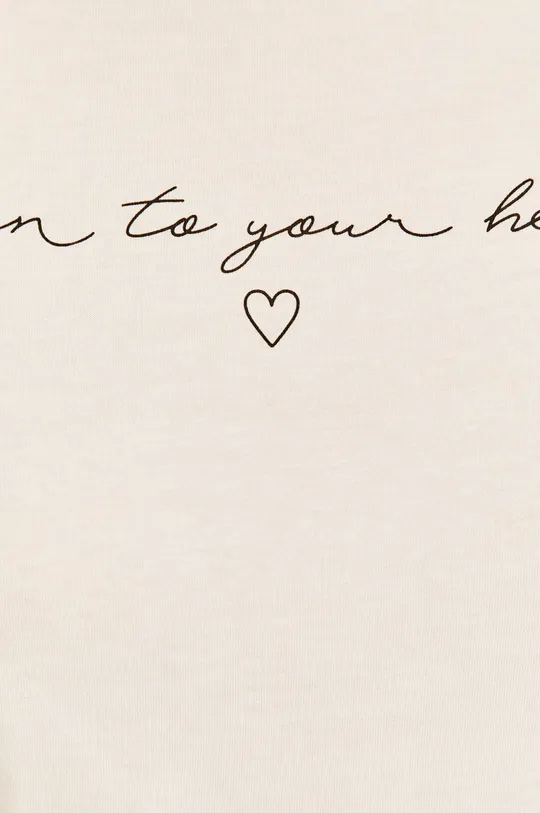 n to your he